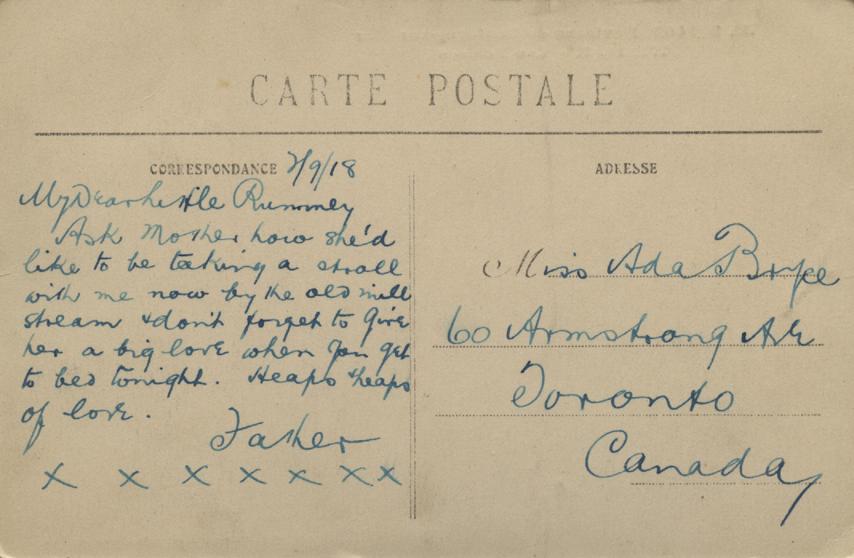 CARTE POSTALE
CORRESPONDANCE 2/9/18
ADRESSE
My Dear little Rummey
Ask Mother how she'd
like to be taking a stroll
with me now by the old mill
stream & don't forget to give
her a big love when you get
to bed tonight. Heaps & heaps
of love.
Father
X X X X X X X
Miss Ada Bryce
60 Armstrong Ave
Toronto
Canada